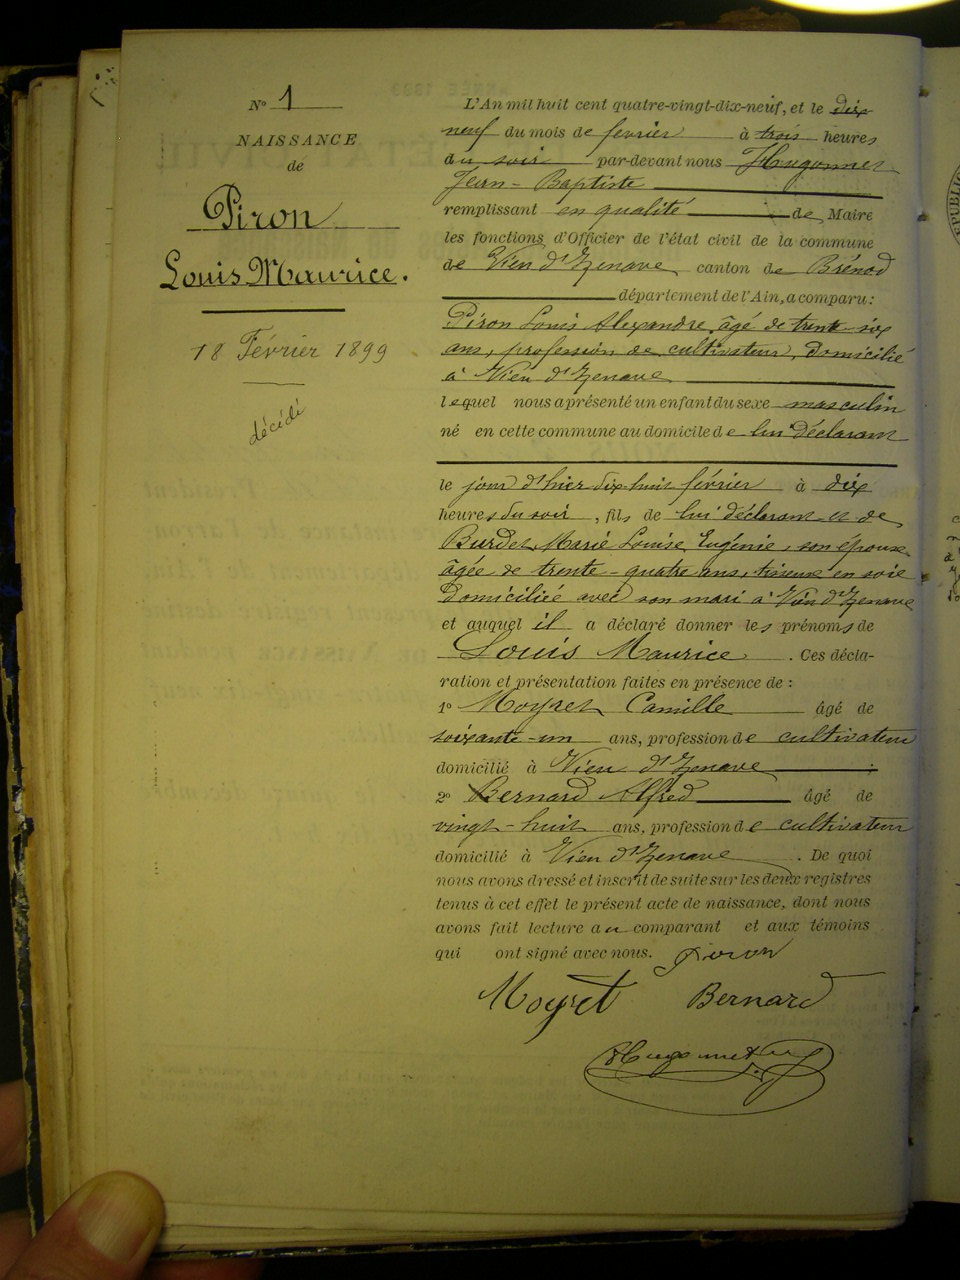 N° 1
NAISSANCE
de
Piron
Louis Maurice.
18 Février 1899
décédé
L'An mil huit cent quatre-vingt-dix-neuf, et le dix
neuf du mois de fevrier à trois heures
du soir par-devant nous Hugonnet
Jean-Baptiste
remplissant en qualité de Maire
les fonctions d'Officier de l'état civil de la commune
de Vieu d'Izenave canton de Brénod
département de l'Ain, a comparu :
Piron Louis Alexandre, âgé de trente-six
ans, profession de cultivateur, domicilié
à Vieu d'Izenave
lequel nous a présenté un enfant du sexe masculin
né en cette commune au domicile de lui déclarant
le jour d'hier dix-huit février à dix
heures du soir, fils de lui déclarant et de
Burdet Marie Louise Eugénie, son épouse
âgée de trente-quatre ans, tisseuse en soie
domiciliée avec son mari à Vieu d'Izenave
et auquel il a déclaré donner les prénoms de
Louis Maurice. Ces décla-
ration et présentation faites en présence de :
1° Moyret Camille âgé de
soixante-un ans, profession de cultivateur
domicilié à Vieu d'Izenave
2° Bernard Alfred âgé de
vingt-huit ans, profession de cultivateur
domicilié à Vieu d'Izenave. De quoi
nous avons dressé et inscrit de suite sur les deux registres
tenus à cet effet le présent acte de naissance, dont nous
avons fait lecture au comparant et aux témoins
qui ont signé avec nous. Piron
Moyret Bernard
Hugonnet